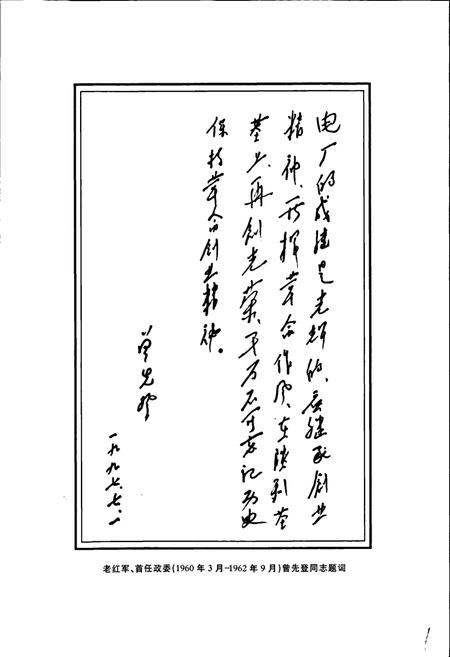 电厂的成绩是光辉的、应继承创业
精神、发挥革命作风、在胜利
再创光荣、千万不可忘记历史
保持革命创业精神。
曾先登
一九九七.七.一
老红军、首任政委(1960年3月-1962年9月)曾先登同志题词